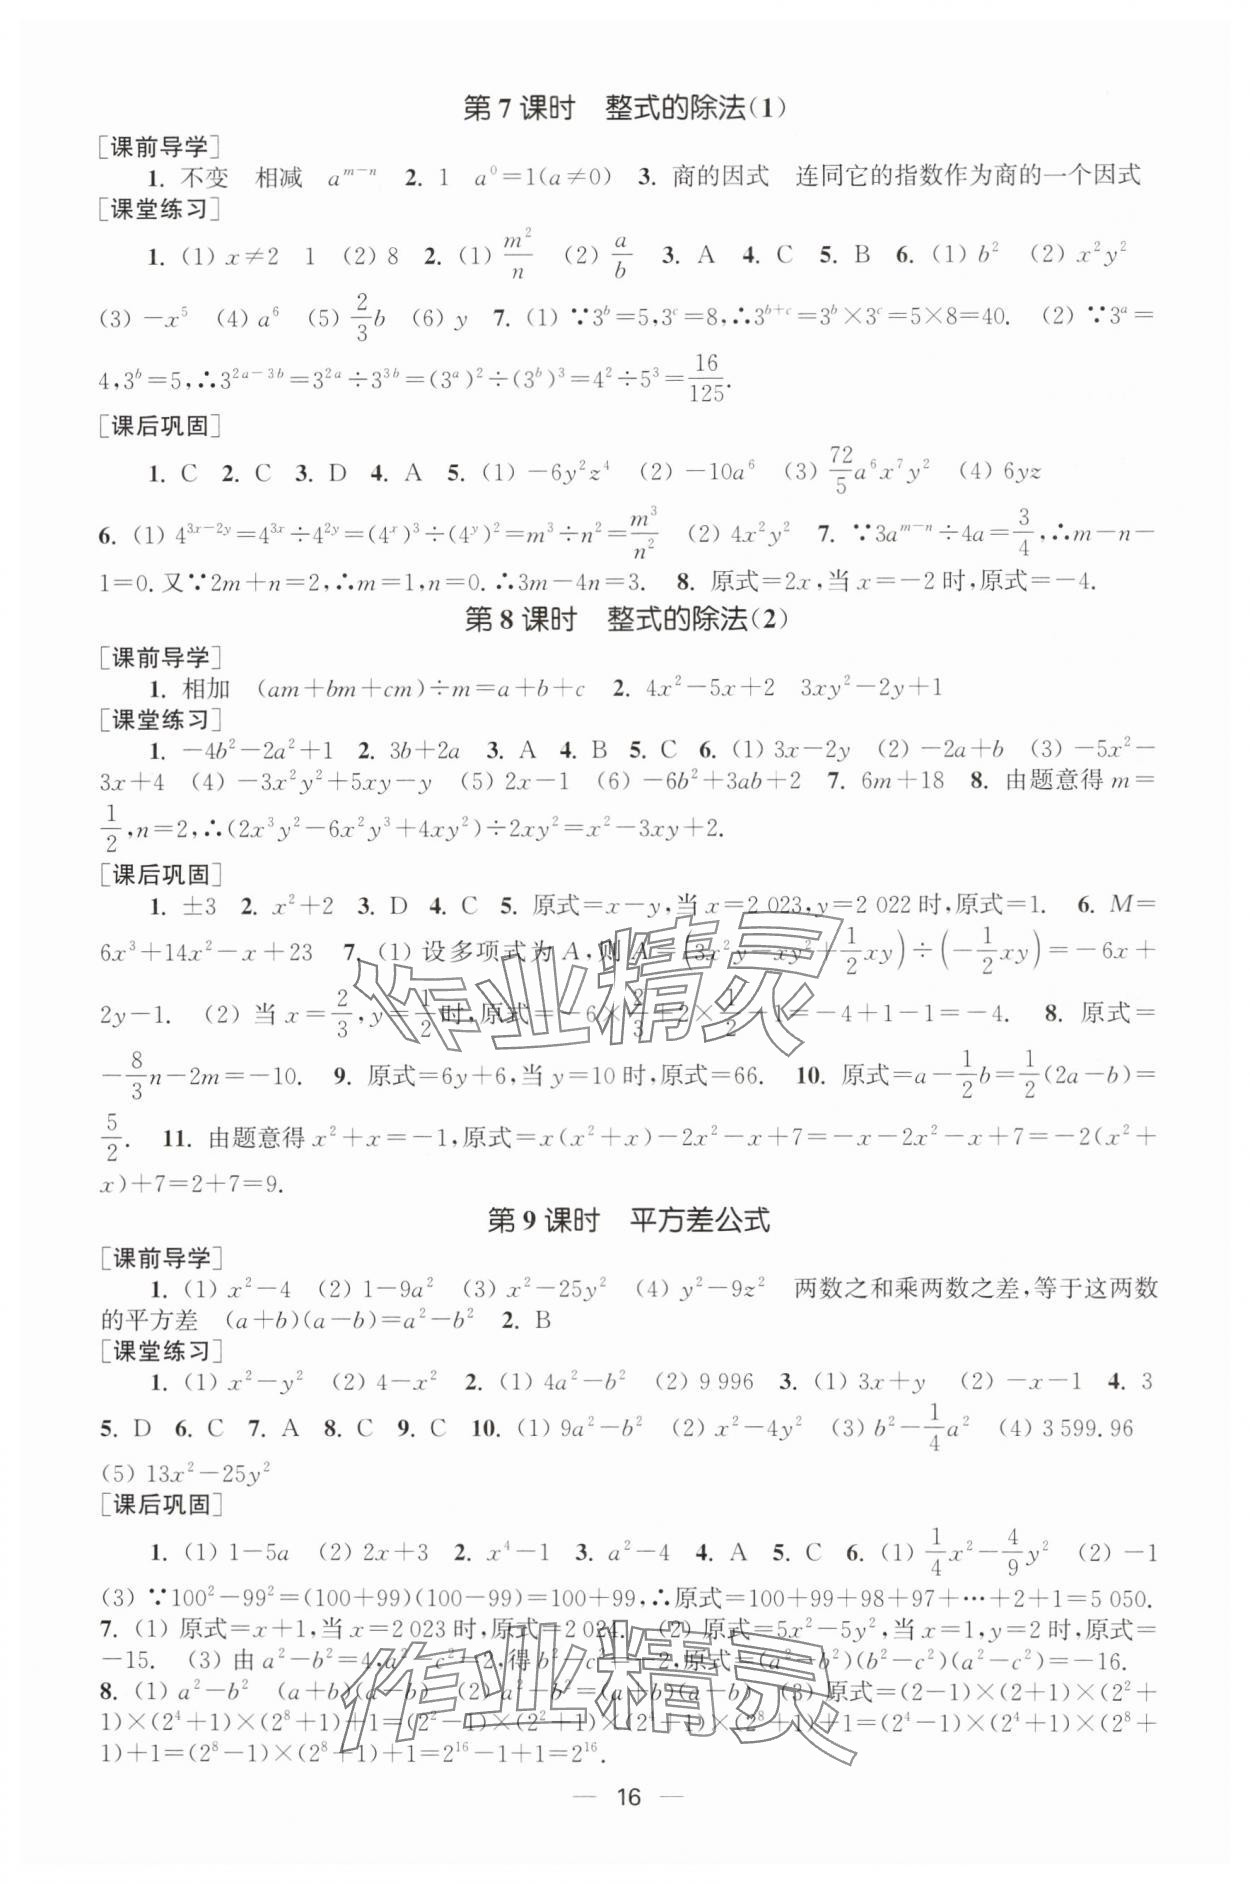 第7课时 整式的除法(1)
[课前导学]
1. 不变 相减 a^{m-n} 2. 1 a^0=1(a≠0) 3. 商的因式 连同它的指数作为商的一个因式
[课堂练习]
1. (1) x≠2 1 (2) 8 2. (1) m^2/n (2) a/b 3. A 4. C 5. B 6. (1) b^2 (2) x^2y^2
(3) -x^5 (4) a^6 (5) 2/3 b (6) y 7. (1) ∵3^b=5,3^c=8,∴3^{b+c}=3^b×3^c=5×8=40. (2) ∵3^a=
4,3^b=5,∴3^{2a-3b}=3^{2a}÷3^{3b}=(3^a)^2÷(3^b)^3=4^2÷5^3=16/125.
[课后巩固]
1. C 2. C 3. D 4. A 5. (1) -6y^2z^4 (2) -10a^6 (3) 72/5 a^6x^7y^2 (4) 6yz
6. (1) 4^{3x-2y}=4^{3x}÷4^{2y}=(4^x)^3÷(4^y)^2=m^3÷n^2=m^3/n^2 (2) 4x^2y^2 7. ∵3a^{m-n}÷4a=3/4,∴m-n-
1=0.又∵2m+n=2,∴m=1,n=0.∴3m-4n=3. 8. 原式=2x,当x=-2时,原式=-4.
第8课时 整式的除法(2)
[课前导学]
1. 相加 (am+bm+cm)÷m=a+b+c 2. 4x^2-5x+2 3xy^2-2y+1
[课堂练习]
1. -4b^2-2a^2+1 2. 3b+2a 3. A 4. B 5. C 6. (1) 3x-2y (2) -2a+b (3) -5x^2-
3x+4 (4) -3x^2y^2+5xy-y (5) 2x-1 (6) -6b^2+3ab+2 7. 6m+18 8. 由题意得m=
1/2,n=2,∴(2x^3y^2-6x^2y^3+4xy^2)÷2xy^2=x^2-3xy+2.
[课后巩固]
1. ±3 2. x^2+2 3. D 4. C 5. 原式=x-y,当x=2 023,y=2 022时,原式=1. 6. M=
6x^3+14x^2-x+23 7. (1) 设多项式为A,则A=(3x^2y-xy^2+1/2 xy)÷(-1/2 xy)=-6x+
2y-1. (2) 当x=2/3,y=1/2时,原式=-6×2/3+2×1/2-1=-4+1-1=-4. 8. 原式=
-8/3 n-2m=-10. 9. 原式=6y+6,当y=10时,原式=66. 10. 原式=a-1/2 b=1/2(2a-b)=
5/2. 11. 由题意得x^2+x=-1,原式=x(x^2+x)-2x^2-x+7=-x-2x^2-x+7=-2(x^2+
x)+7=2+7=9.
第9课时 平方差公式
[课前导学]
1. (1) x^2-4 (2) 1-9a^2 (3) x^2-25y^2 (4) y^2-9z^2 两数之和乘两数之差,等于这两数
的平方差 (a+b)(a-b)=a^2-b^2 2. B
[课堂练习]
1. (1) x^2-y^2 (2) 4-x^2 2. (1) 4a^2-b^2 (2) 9 996 3. (1) 3x+y (2) -x-1 4. 3
5. D 6. C 7. A 8. C 9. C 10. (1) 9a^2-b^2 (2) x^2-4y^2 (3) b^2-1/4 a^2 (4) 3 599.96
(5) 13x^2-25y^2
[课后巩固]
1. (1) 1-5a (2) 2x+3 2. x^4-1 3. a^2-4 4. A 5. C 6. (1) 1/4 x^2-4/9 y^2 (2) -1
(3) ∵100^2-99^2=(100+99)(100-99)=100+99,∴原式=100+99+98+97+…+2+1=5 050.
7. (1) 原式=x+1,当x=2 023时,原式=2 024. (2) 原式=5x^2-5y^2,当x=1,y=2时,原式=
-15. (3) 由a^2-b^2=4,a^2-c^2=2,得b^2-c^2=-2,原式=(a^2-b^2)(b^2-c^2)(a^2-c^2)=-16.
8. (1) a^2-b^2 (a+b)(a-b) (2) a^2-b^2=(a+b)(a-b) (3) 原式=(2-1)×(2+1)×(2^2+
1)×(2^4+1)×(2^8+1)+1=(2^2-1)×(2^2+1)×(2^4+1)×(2^8+1)+1=(2^4-1)×(2^4+1)×(2^8+
1)+1=(2^8-1)×(2^8+1)+1=2^16-1+1=2^16.
— 16 —
作业精灵
作业精灵